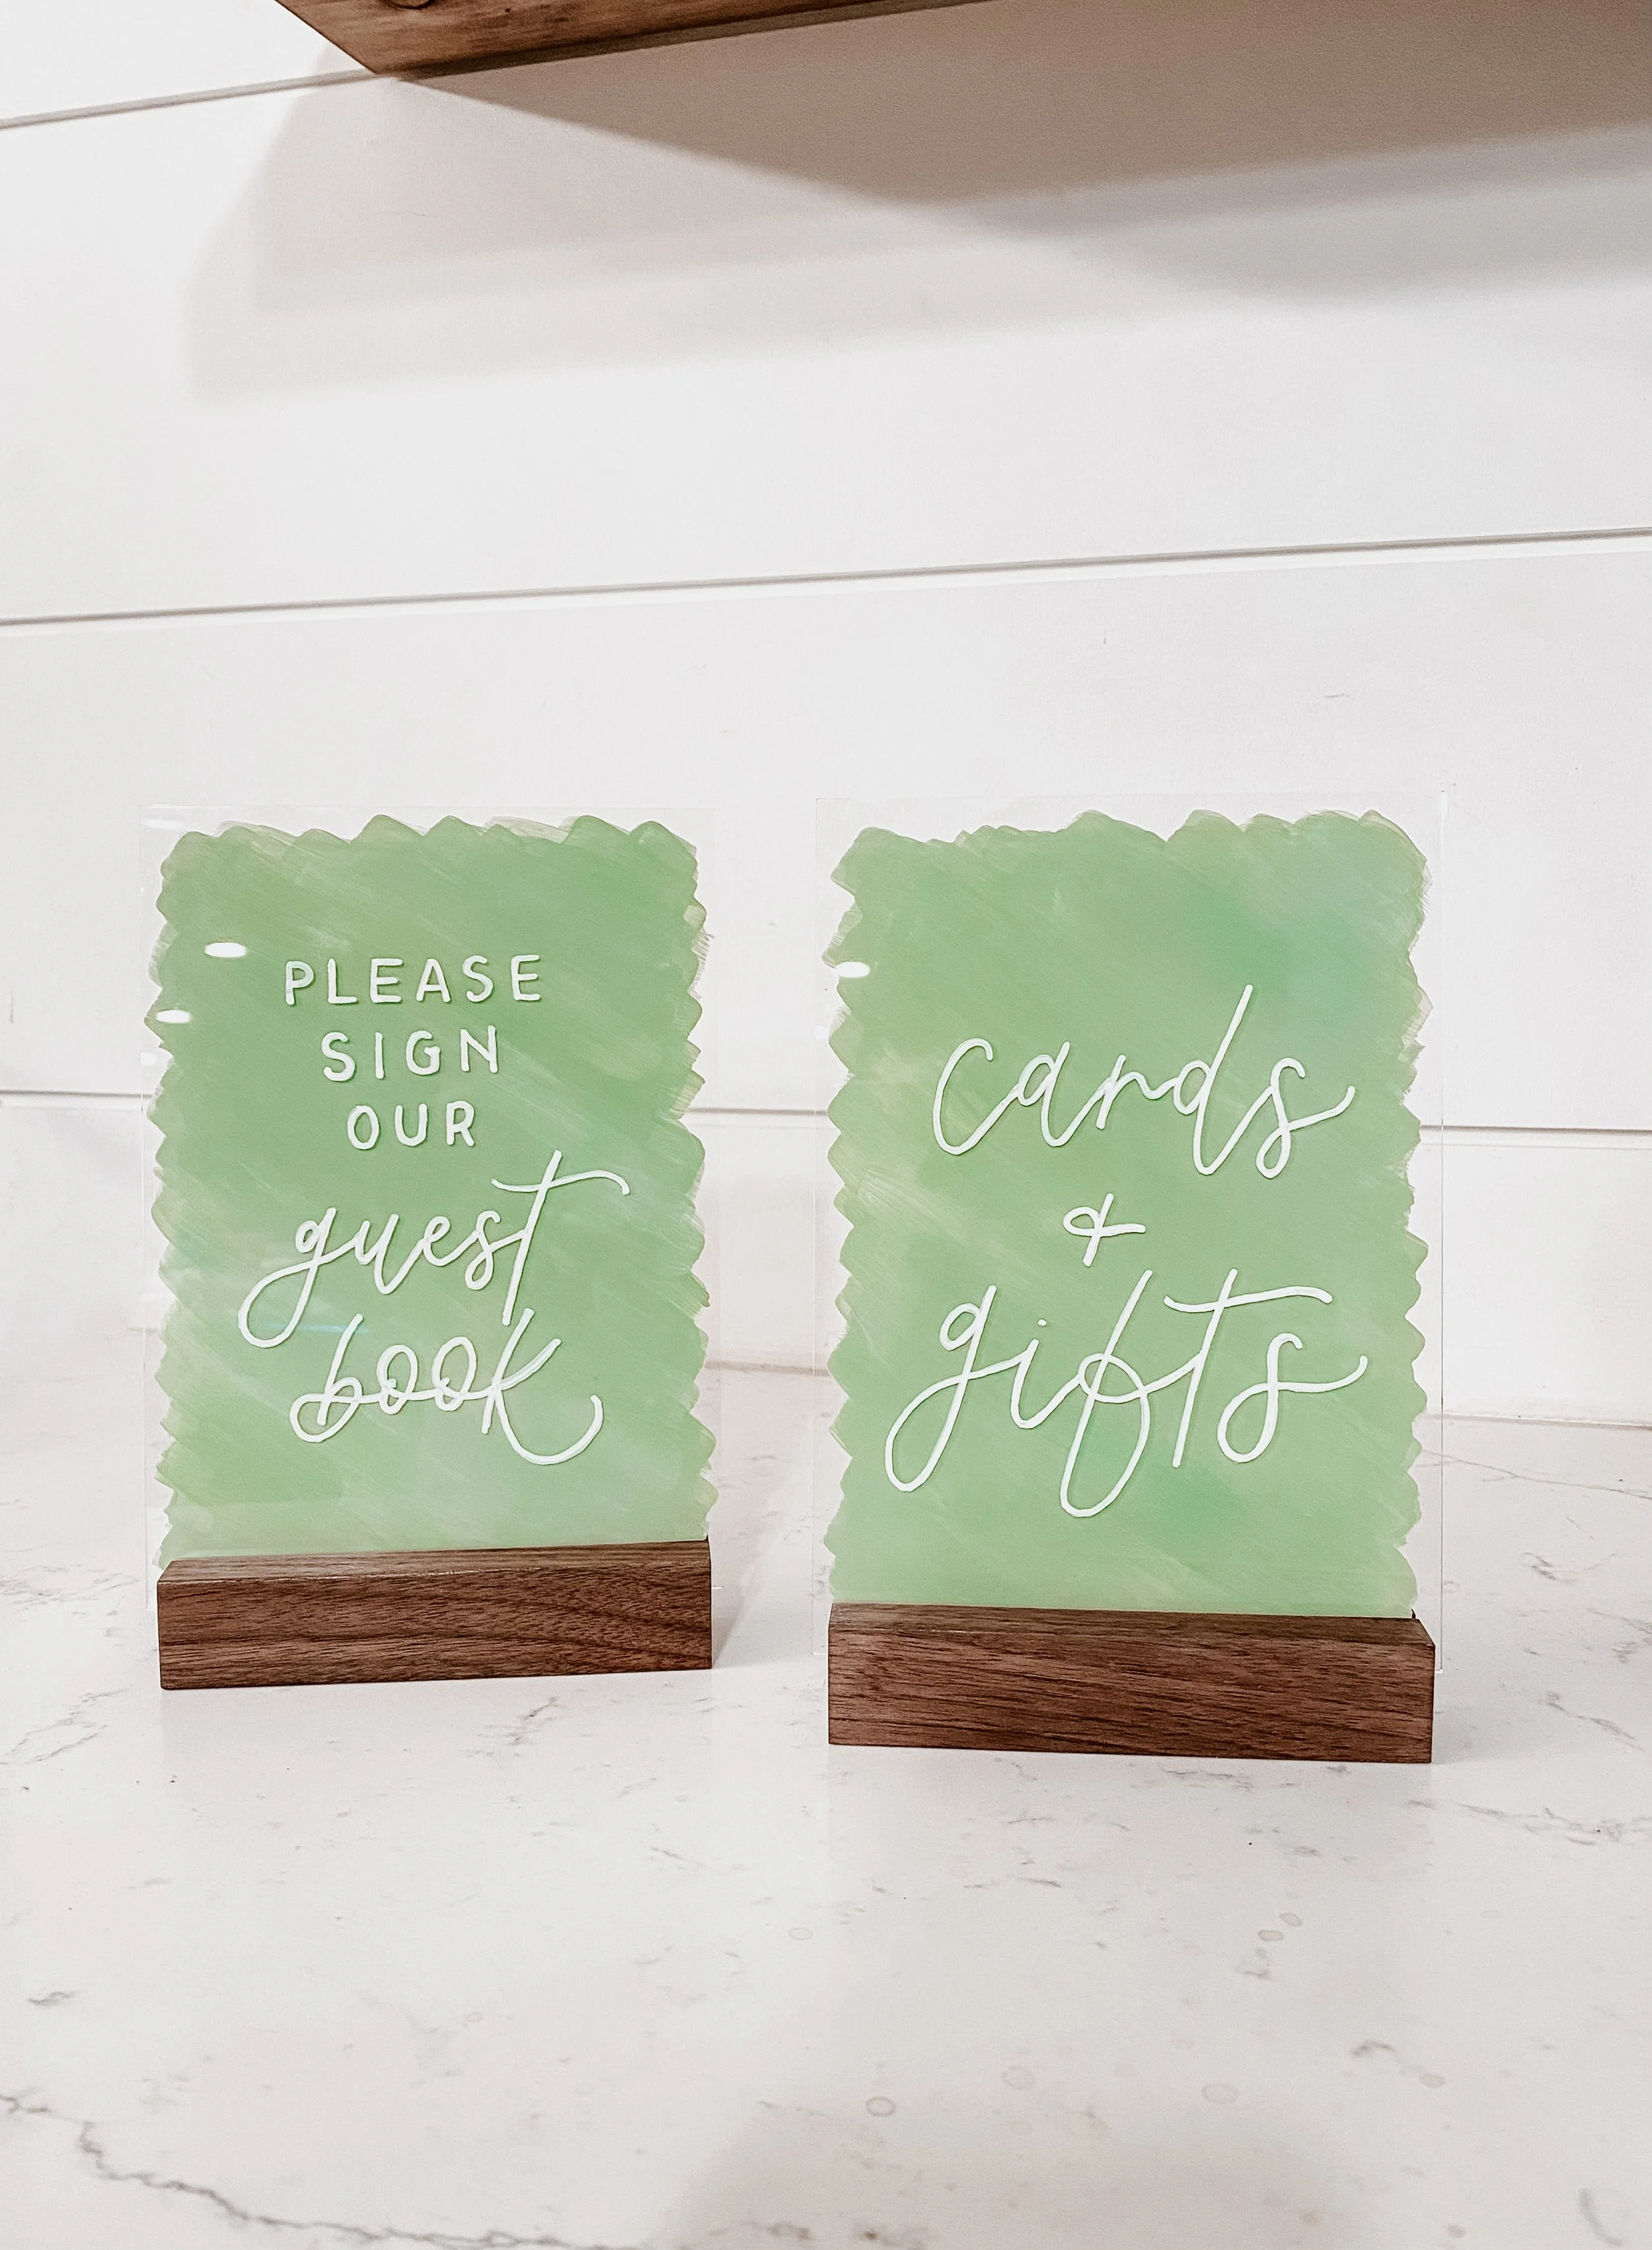 PLEASE
SIGN
OUR
guest
book
cards
+
gifts